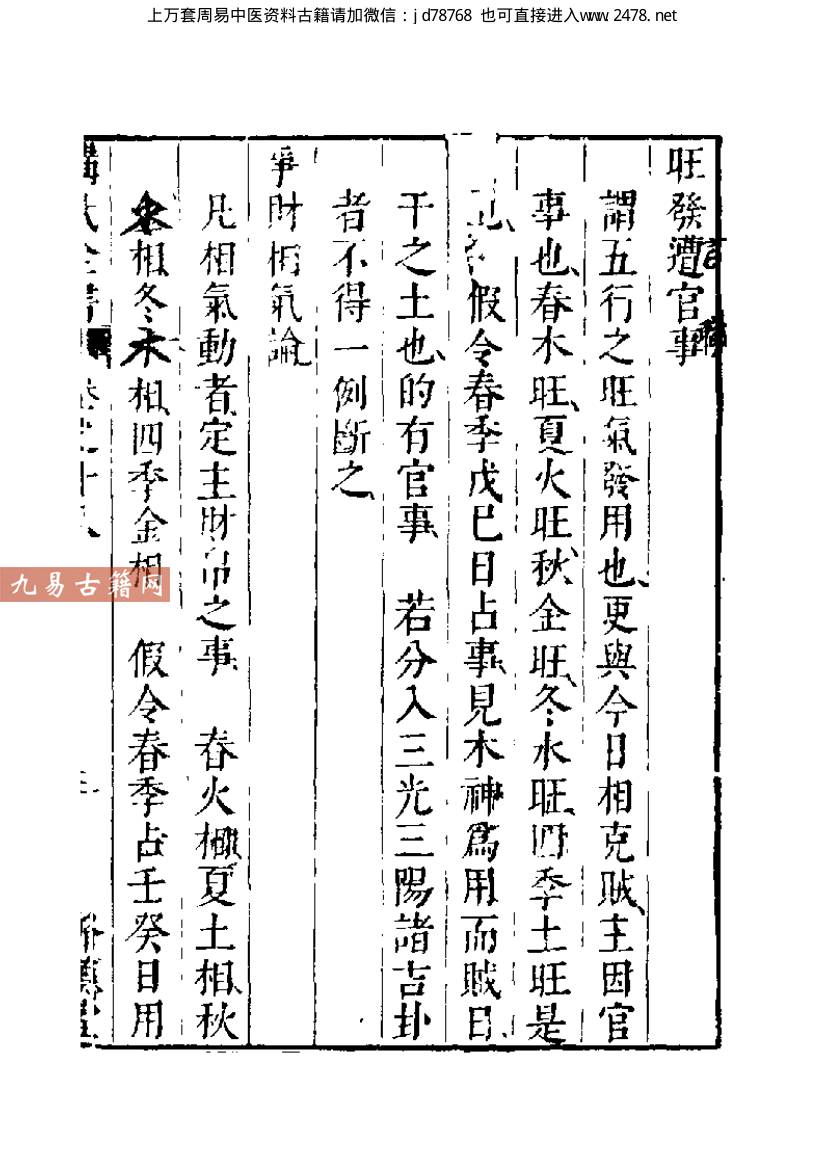 上万套周易中医资料古籍请加微信：jd78768 也可直接进入www.2478.net
旺發遭官事
謂五行之旺氣發用也更與今日相克賊主因官
事也春木旺夏火旺秋金旺冬水旺四季土旺是
也 假令春季戊巳日占事見木神爲用而賊日
干之土也的有官事 若分入三光三陽諸吉卦
者不得一例斷之
爭財相氣論
凡相氣動者定主財帛之事 春火相夏土相秋
水相冬木相四季金相 假令春季占壬癸日用
九易古籍网